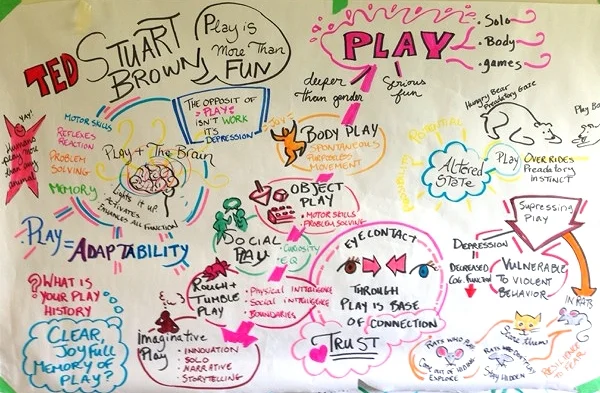 TED
STUART
BROWN
Play is
More Than
FUN
PLAY
• Solo
• Body
• games
deeper
than gender
Serious
fun
YAY!
Humans
play
more
MOTOR SKILLS
REFLEXES
REACTION
PROBLEM
SOLVING
MEMORY
PLAY + The BRAIN
Lights it up
ACTIVATES
ENHANCES ALL FUNCTION
THE OPPOSIT OF
PLAY
ISN'T WORK
IT'S
DEPRESSION
JOY
BODY PLAY
SPONTANEOUS
PURPOSLESS
MOVEMENT
Hungry Bear
Predatory Gaze
Play Bo
Altered
State
Play
OVERRIDES
Preadatory
INSTINCT
OBJECT
PLAY
• MOTOR SKILLS
• PROBLEM SOLVING
SOCIAL
PLAY
• CURIOSITY
• EQ
PLAY = ADAPTABILITY
ROUGH +
TUMBLE
PLAY
• Physical intelligence
• Social intelligence
• BOUNDARIES
Imaginative
Play
• INNOVATION
• SOLO
• NARRATIVE
• STORYTELLING
EYE CONTACT
THROUGH
PLAY IS BASE
OF CONNECTION
TRUST
Supressing
Play
DEPRESSION
DECREASED
COG. FUNCTION
VULNERABLE
TO VIOLENT
BEHAVIOR
IN RATS
Scare them!
RATS WHO PLAY
COME OUT OF HIDING
EXPLORE
RATS WHO DON'T PLAY
STAY HIDDEN
RESILIENCE
TO FEAR
? WHAT IS
YOUR PLAY
HISTORY
CLEAR,
JOYFULL
MEMORY OF
PLAY?